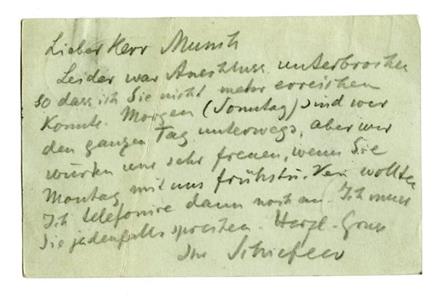 Lieber Herr Munch
Leider war Anschluss unterbrochen
so dass ich Sie nicht mehr erreichen
konnte. Morgen (Sonntag) sind wir
den ganzen Tag unterwegs, aber wir
würden uns sehr freuen, wenn Sie
Montag mit uns frühstücken wollten
Ich telefoniere dann noch an. Ich muss
Sie jedenfalls sprechen. Herzl. Gruss
Ihr Schiefler